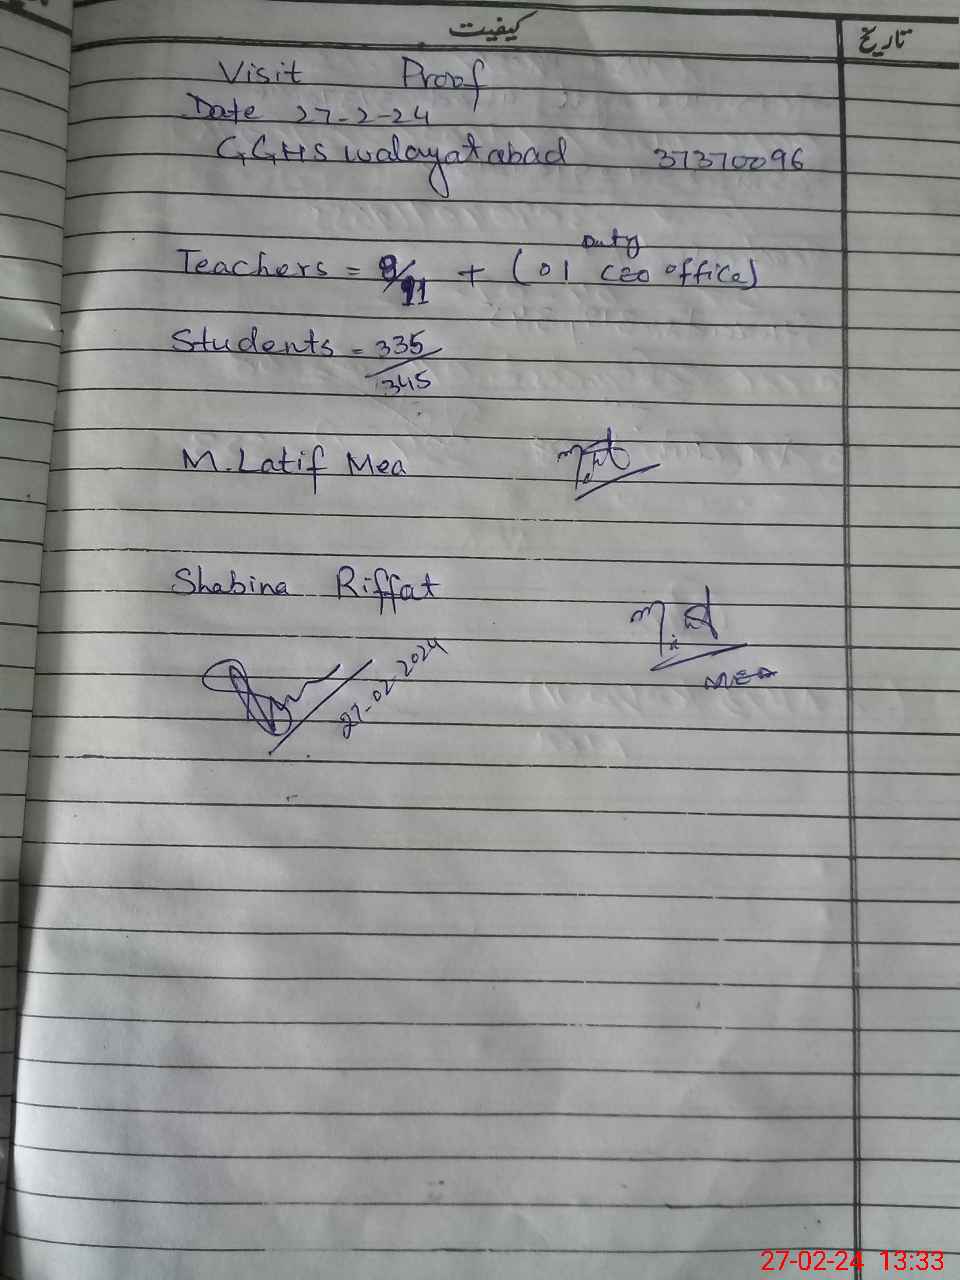 کیفیت تاریخ
Visit Proof
Date 27-2-24
GGHS walayatabad 37370096
Duty
Teachers = 9/11 + (01 CEO office)
Students = 335
345
M. Latif Mea
Shabina Riffat
MEA
27-02-2024
27-02-24 13:33